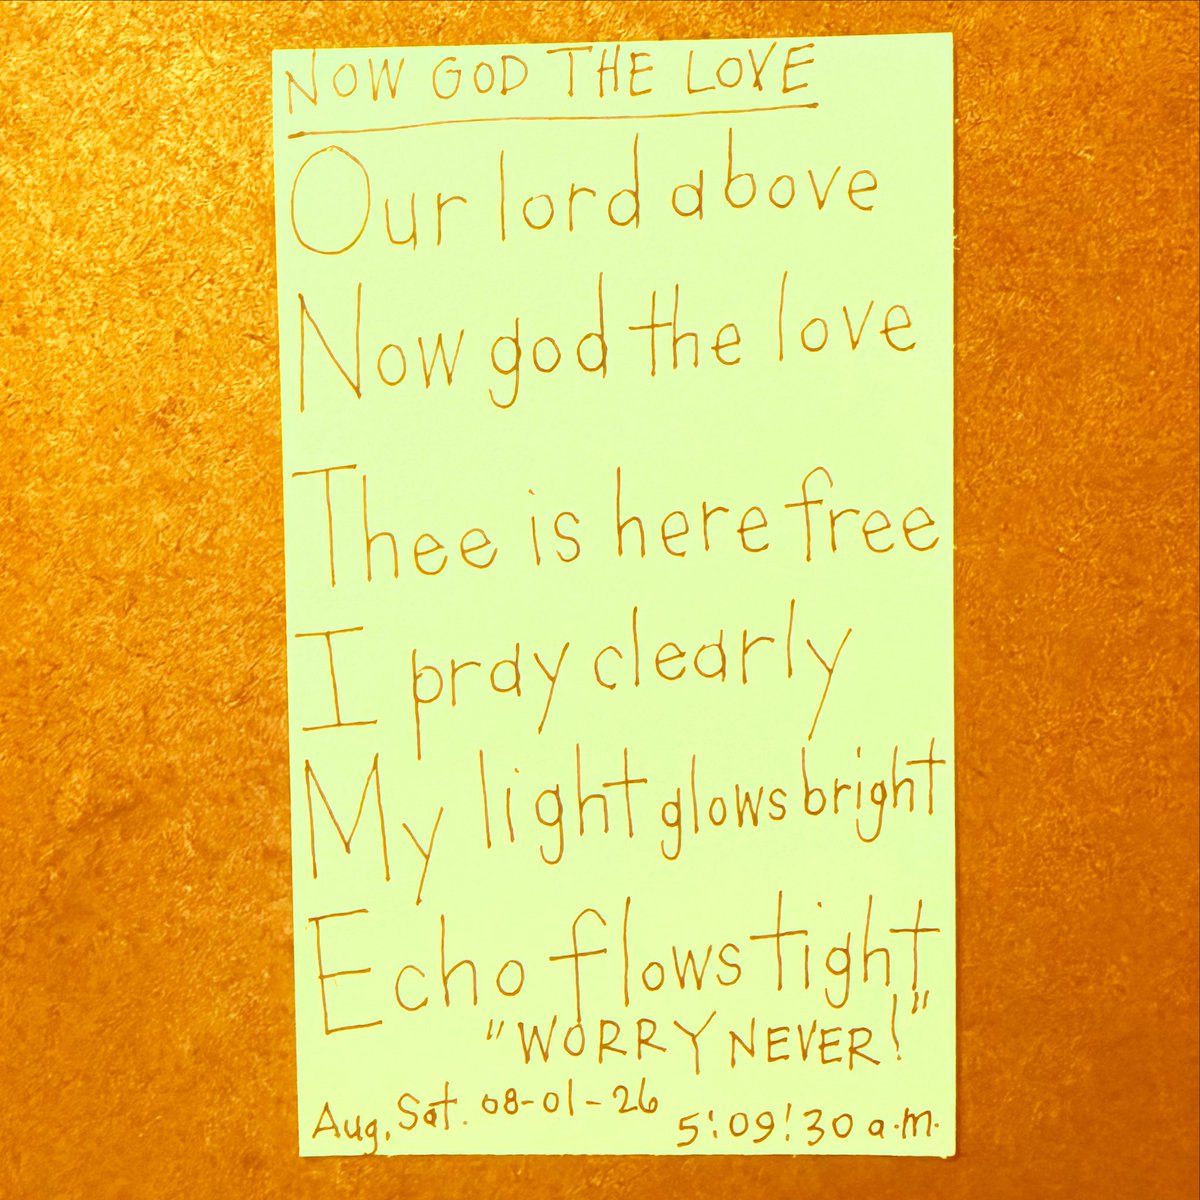 NOW GOD THE LOVE
Our lord above
Now god the love
Thee is here free
I pray clearly
My light glows bright
Echo flows tight
"WORRY NEVER!"
Aug, Sat. 08-01-26 5:09:30 a.m.